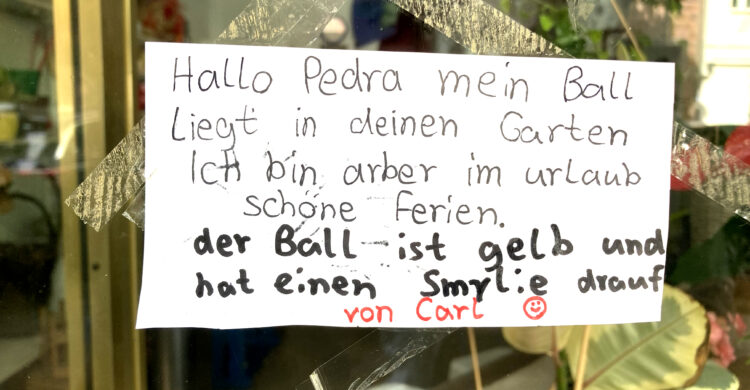 Hallo Pedra mein Ball
Liegt in deinen Garten
Ich bin arber im urlaub
schöne Ferien.
der Ball ist gelb und
hat einen Smylie drauf
von Carl ☺